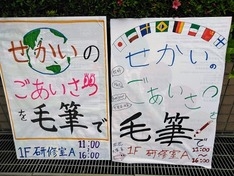 せかいの
ごあいさつ
を毛筆で
1F 研修室A 11:00
16:00
せかいの
ごあいさつ
を
毛筆で
1F 研修室A 11:00
16:00